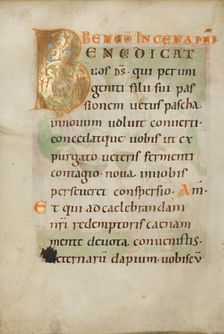 BENED̄ IN CENA DN̄I
BENEDICAT
uos DS̄. qui per uni
geniti filii sui pas
sionem uetus pascha
in nouum uoluit conuerti.
concedatque uobis ut ex
purgato ueteris fermenti
contagio. noua in uobis
perseueret conspersio. Am̄.
Et qui ad caelebrandam
n̄ri redemptoris caenam
mente deuota conuenistis.
aeternarū dapium. uobiscū